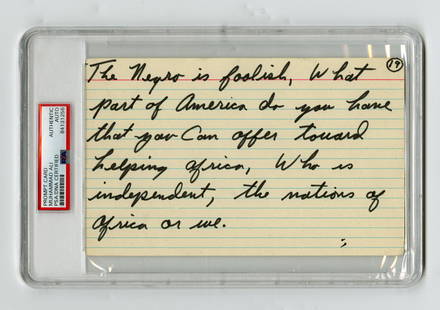 The Negro is foolish, What
19
part of America do you have
that you Can offer toward
helping africa, Who is
independent, the nations of
africa or we.
PROMPT CARD
MUHAMMAD ALI
PSA/DNA CERTIFIED
AUTHENTIC
AUTO
84131258